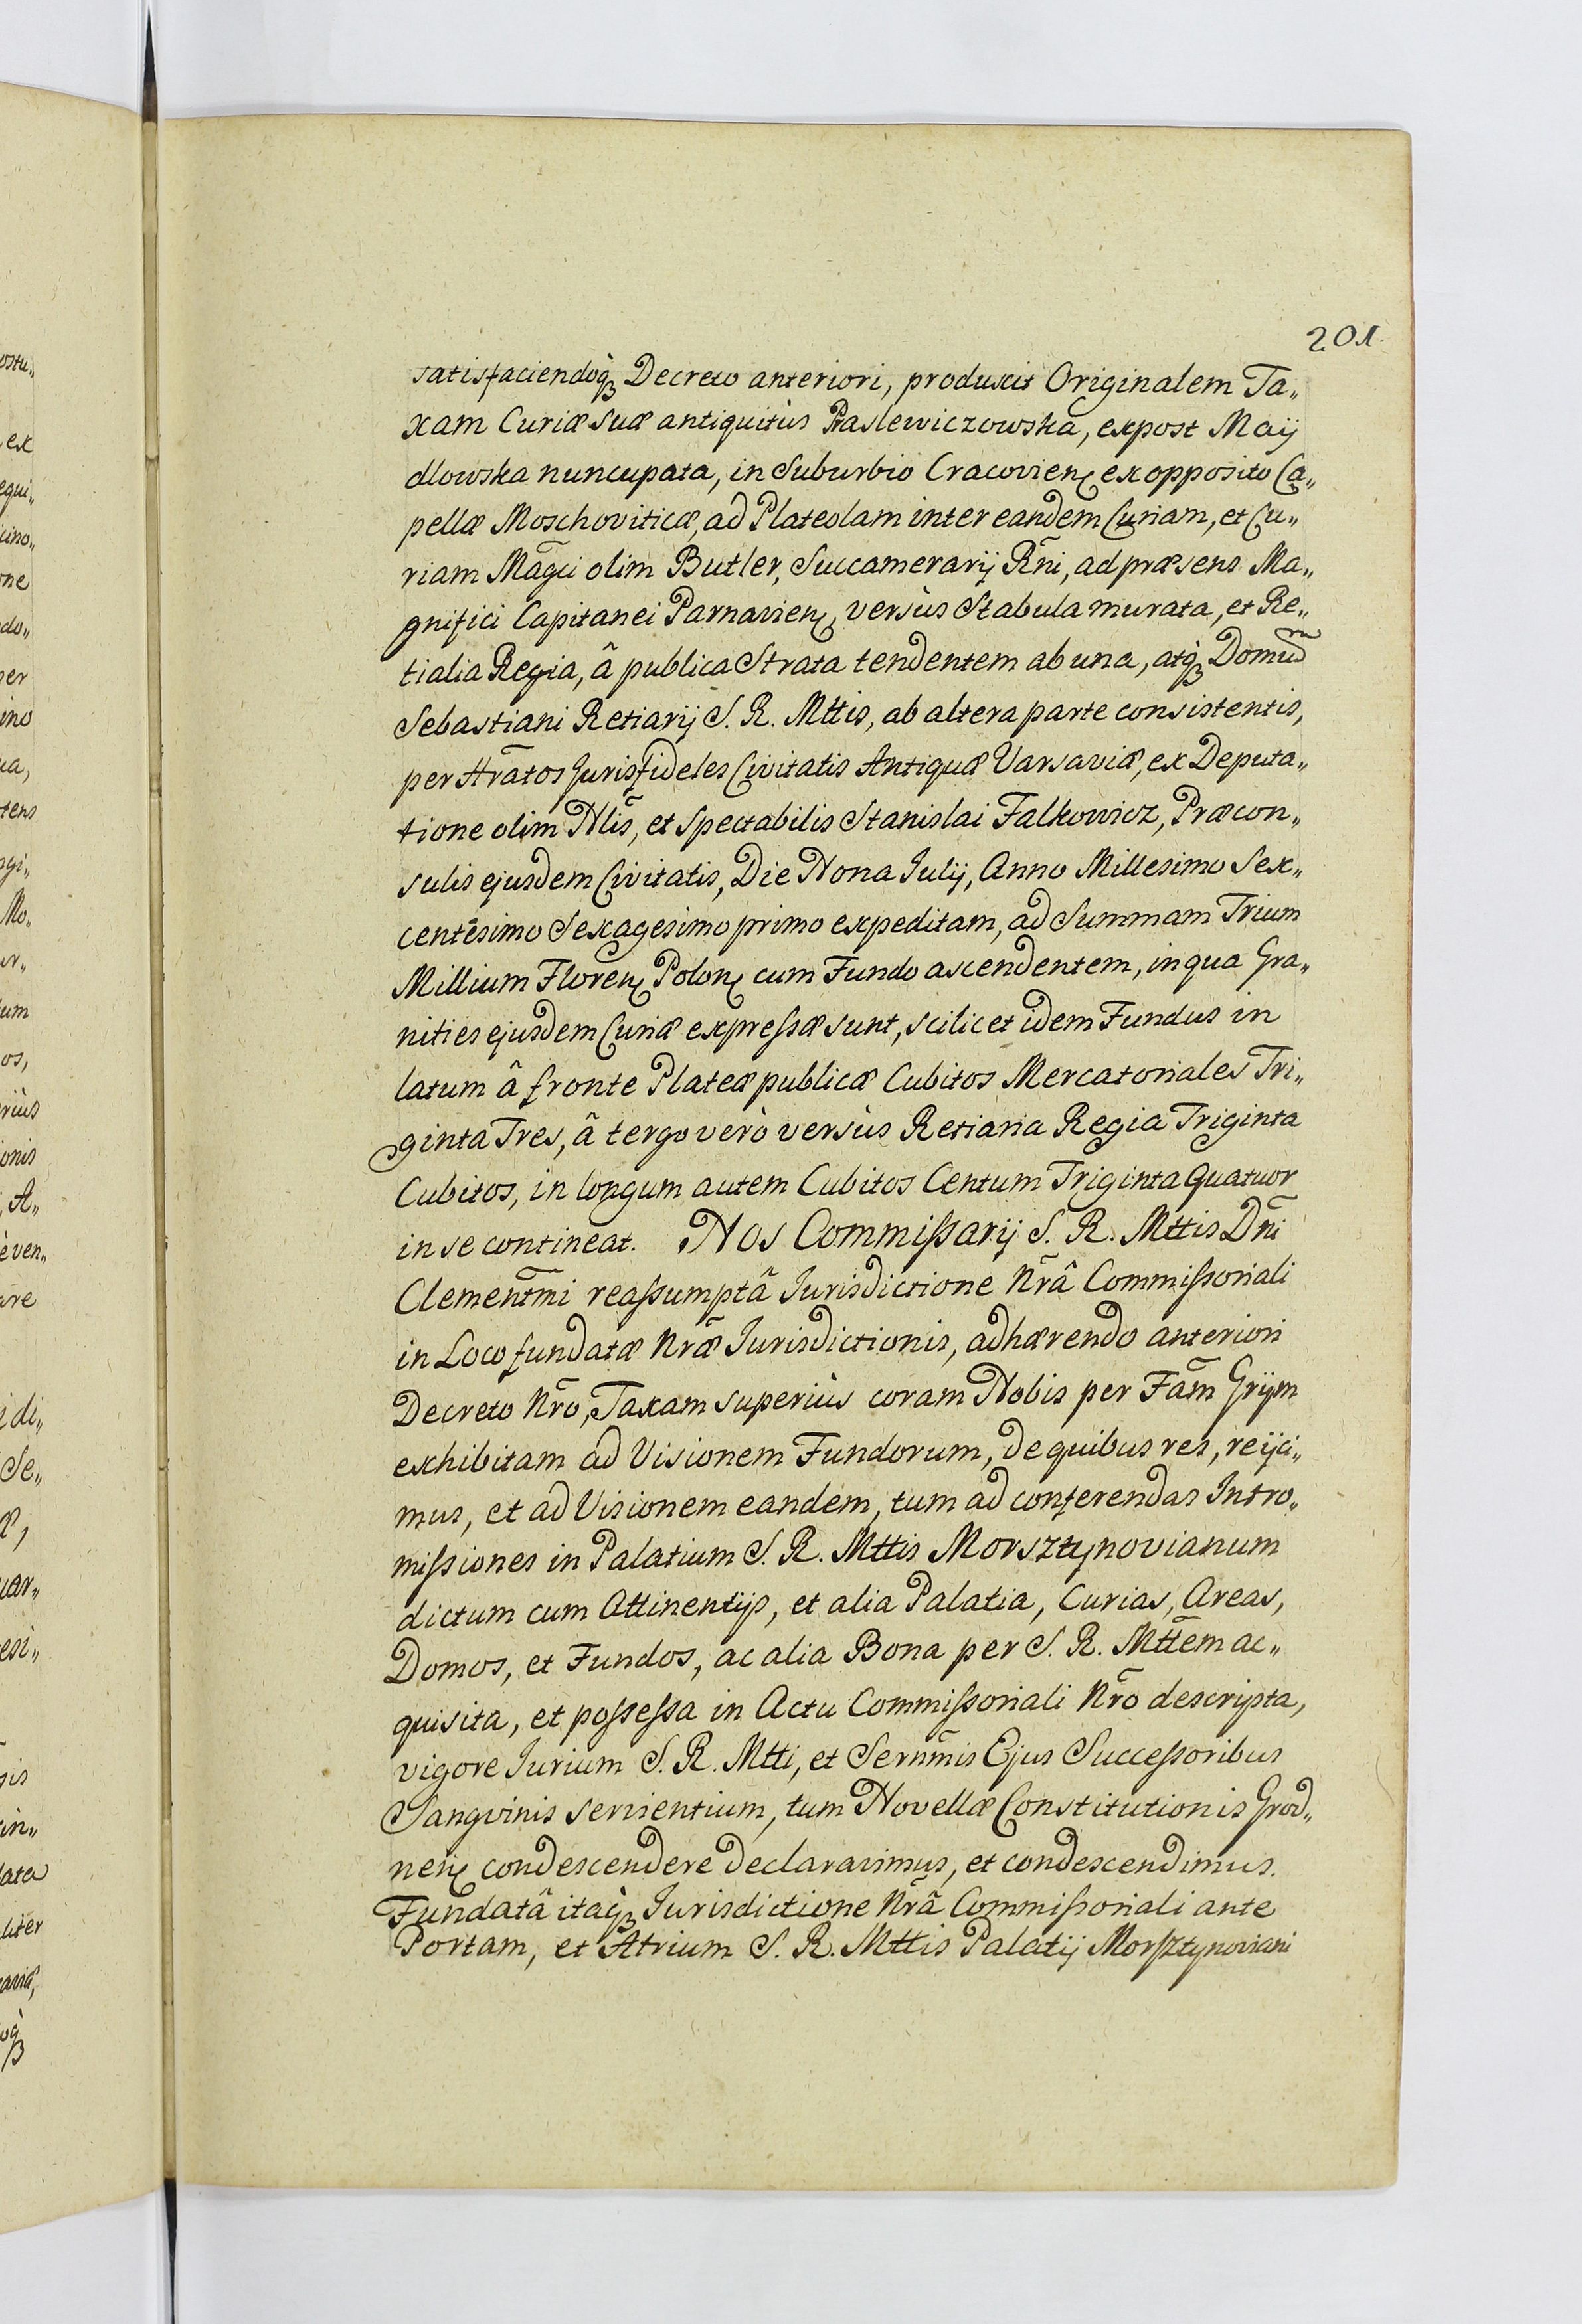 201.
satisfaciendoq́ꝫ Decreto anteriori, produxit Originalem Ta„
xam Curiæ suæ antiquitùs Praslewiczowska, expost Maij
dlowska nuncupata, in Suburbio Cracovien̨ ex opposito Ca„
pellæ Moschoviticæ, ad Plateolam inter eandem Curiam, et Cu„
riam Mag̃ci olim Butler, Succamerarij Rñi, ad præsens Ma„
gnifici Capitanei Parnavien̨, versùs Stabula murata, et Re„
tialia Regia, â publica Strata tendentem ab una, atq́ꝫ Domum
Sebastiani Retiarij S. R. Mttis, ab altera parte consistentis,
per Hrãtos Jurisfideles Civitatis Antiquæ Varsaviæ, ex Deputa„
tione olim Nlis̃, et Spectabilis Stanislai Falkowicz, Præcon„
sulis ejusdem Civitatis, Die Nona Julij, Anno Millesimo Sex„
centesimo Sexagesimo primo expeditam, ad Summam Trium
Millium Floren̨ Polon̨ cum Fundo ascendentem, in qua Gra„
nities ejusdem Curiæ expreſsæ sunt, scilicet idem Fundus in
latum â fronte Plateæ publicæ Cubitos Mercatoriales Tri„
ginta Tres, â tergo verò versùs Retiaria Regia Triginta
Cubitos, in longum autem Cubitos Centum Triginta Quatuor
in se contineat. Nos Commiſsarij S. R. Mttis Dñi
Clementm̃i reaſsumptâ Jurisdictione Nr̃â Commiſsoriali
in Loco fundatæ Nr̃æ Jurisdictionis, adhærendo anteriori
Decreto Nr̃o, Taxam superiùs coram Nobis per Fam̃ Grijm
exhibitam ad Visionem Fundorum, de quibus res, reijci„
mus, et ad Visionem eandem, tum ad conferendas Intro„
miſsiones in Palatium S. R. Mttis Morsztynovianum
dictum cum Attinentijs, et alia Palatia, Curias, Areas,
Domos, et Fundos, ac alia Bona per S. R. Mttẽm ac„
quisita, et poſseſsa in Actu Commiſsoriali Nr̃o descripta,
vigore Jurium S. R. Mtti, et Sernm̃is Ejus Succeſsoribus
Sangvinis servientium, tum Novellæ Constitutionis Grod„
nen̨ condescendere declaravimus, et condescendimus.
Fundatâ itaq́ꝫ Jurisdictione Nr̃â Commiſsoriali ante
Portam, et Atrium S. R. Mttis Palatij Morſztynoviani